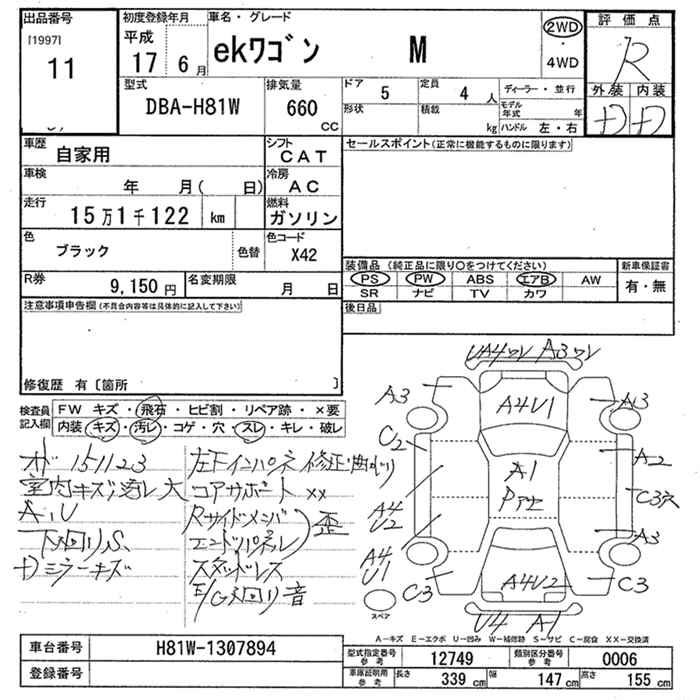 出品番号
[1997]
11
初度登録年月
平成
17 6月
車名・グレード
ekワゴン M
2WD
・
4WD
評価点
R
外装 内装
型式
DBA-H81W
排気量
660
cc
ドア
5
定員
4 人
ディーラー・並行
形状
積載
kg
モデル年式 年
ハンドル 左・右
車歴
自家用
シフト
CAT
車検
年 月( 日)
冷房
AC
走行
15万1千122 km
燃料
ガソリン
色
ブラック
色替
色コード
X42
R券
9,150 円
名変期限
月 日
セールスポイント(正常に機能するものに限ります)
装備品 (純正品に限り○をつけてください)
PS PW ABS エアB AW
SR ナビ TV カワ
新車保証書
有・無
後日品
注意事項申告欄(不具合内容等は具体的に記入して下さい)
修復歴 有〔箇所 〕
検査員記入欄
FW キズ・飛石・ヒビ割・リペア跡・×要
内装・キズ・汚レ・コゲ・穴・スレ・キレ・破レ
151123
室内キズ汚レ大
A、U
下回りS
ミラーキズ
左下インパネ修正・曲がり
コアサポート××
Rサイドメンバ
エンドパネル
歪
スタッドレス
E/G下回り音
UA4ワレ A3ワレ
A3
A4U1
A3
C2
A1
A2
C3穴
A4
U2
A3
A4
U1
C3
A4U2
C3
U4 A1
スペア
A-キズ E-エクボ U-凹み W-補修跡 S-サビ C-腐食 XX-交換済
車台番号
H81W-1307894
登録番号
型式指定番号 参考
12749
類別区分番号 参考
0006
車庫証明用 参考
長さ 339 cm 幅 147 cm 高さ 155 cm